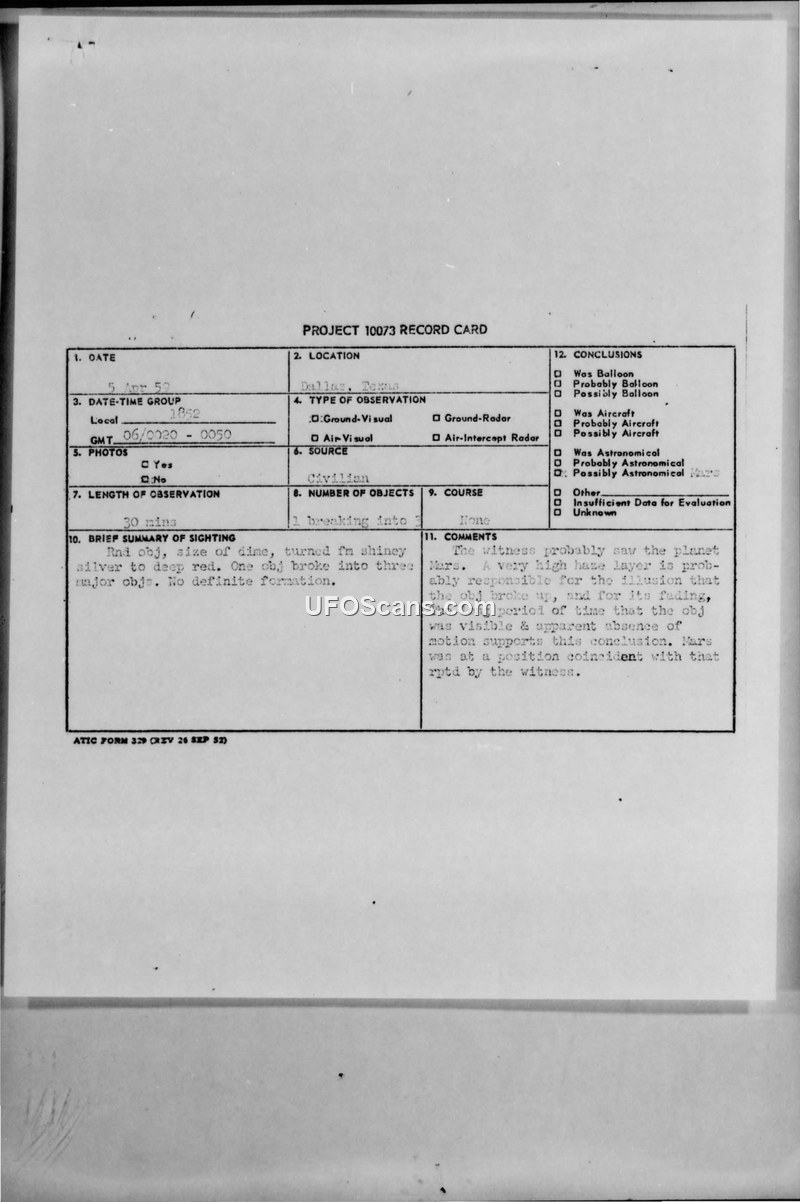 PROJECT 10073 RECORD CARD
1. DATE
5 Apr
2. LOCATION
Dallas, Texas
3. DATE-TIME GROUP
Local 1852
GMT 06/0020 - 0050
4. TYPE OF OBSERVATION
Ground-Visual
Ground-Radar
Air-Visual
Air-Intercept Radar
5. PHOTOS
Yes
No
6. SOURCE
Civilian
7. LENGTH OF OBSERVATION
30 mins
8. NUMBER OF OBJECTS
1 breaking into 3
9. COURSE
None
12. CONCLUSIONS
Was Balloon
Probably Balloon
Possibly Balloon
Was Aircraft
Probably Aircraft
Possibly Aircraft
Was Astronomical
Probably Astronomical
Possibly Astronomical Mars
Other
Insufficient Data for Evaluation
Unknown
10. BRIEF SUMMARY OF SIGHTING
Rnd obj, size of dime, turned fm shiney
silver to deep red. One obj broke into three
major objs. No definite formation.
11. COMMENTS
The witness probably saw the planet
Mars. A very high haze layer is prob-
ably responsible for the illusion that
the obj broke up, and for its fading,
period of time that the obj
was visible & apparent absence of
motion supports this conclusion. Mars
was at a position coincident with that
rptd by the witness.
UFOScans.com
ATIC FORM 329 (REV 26 SEP 52)